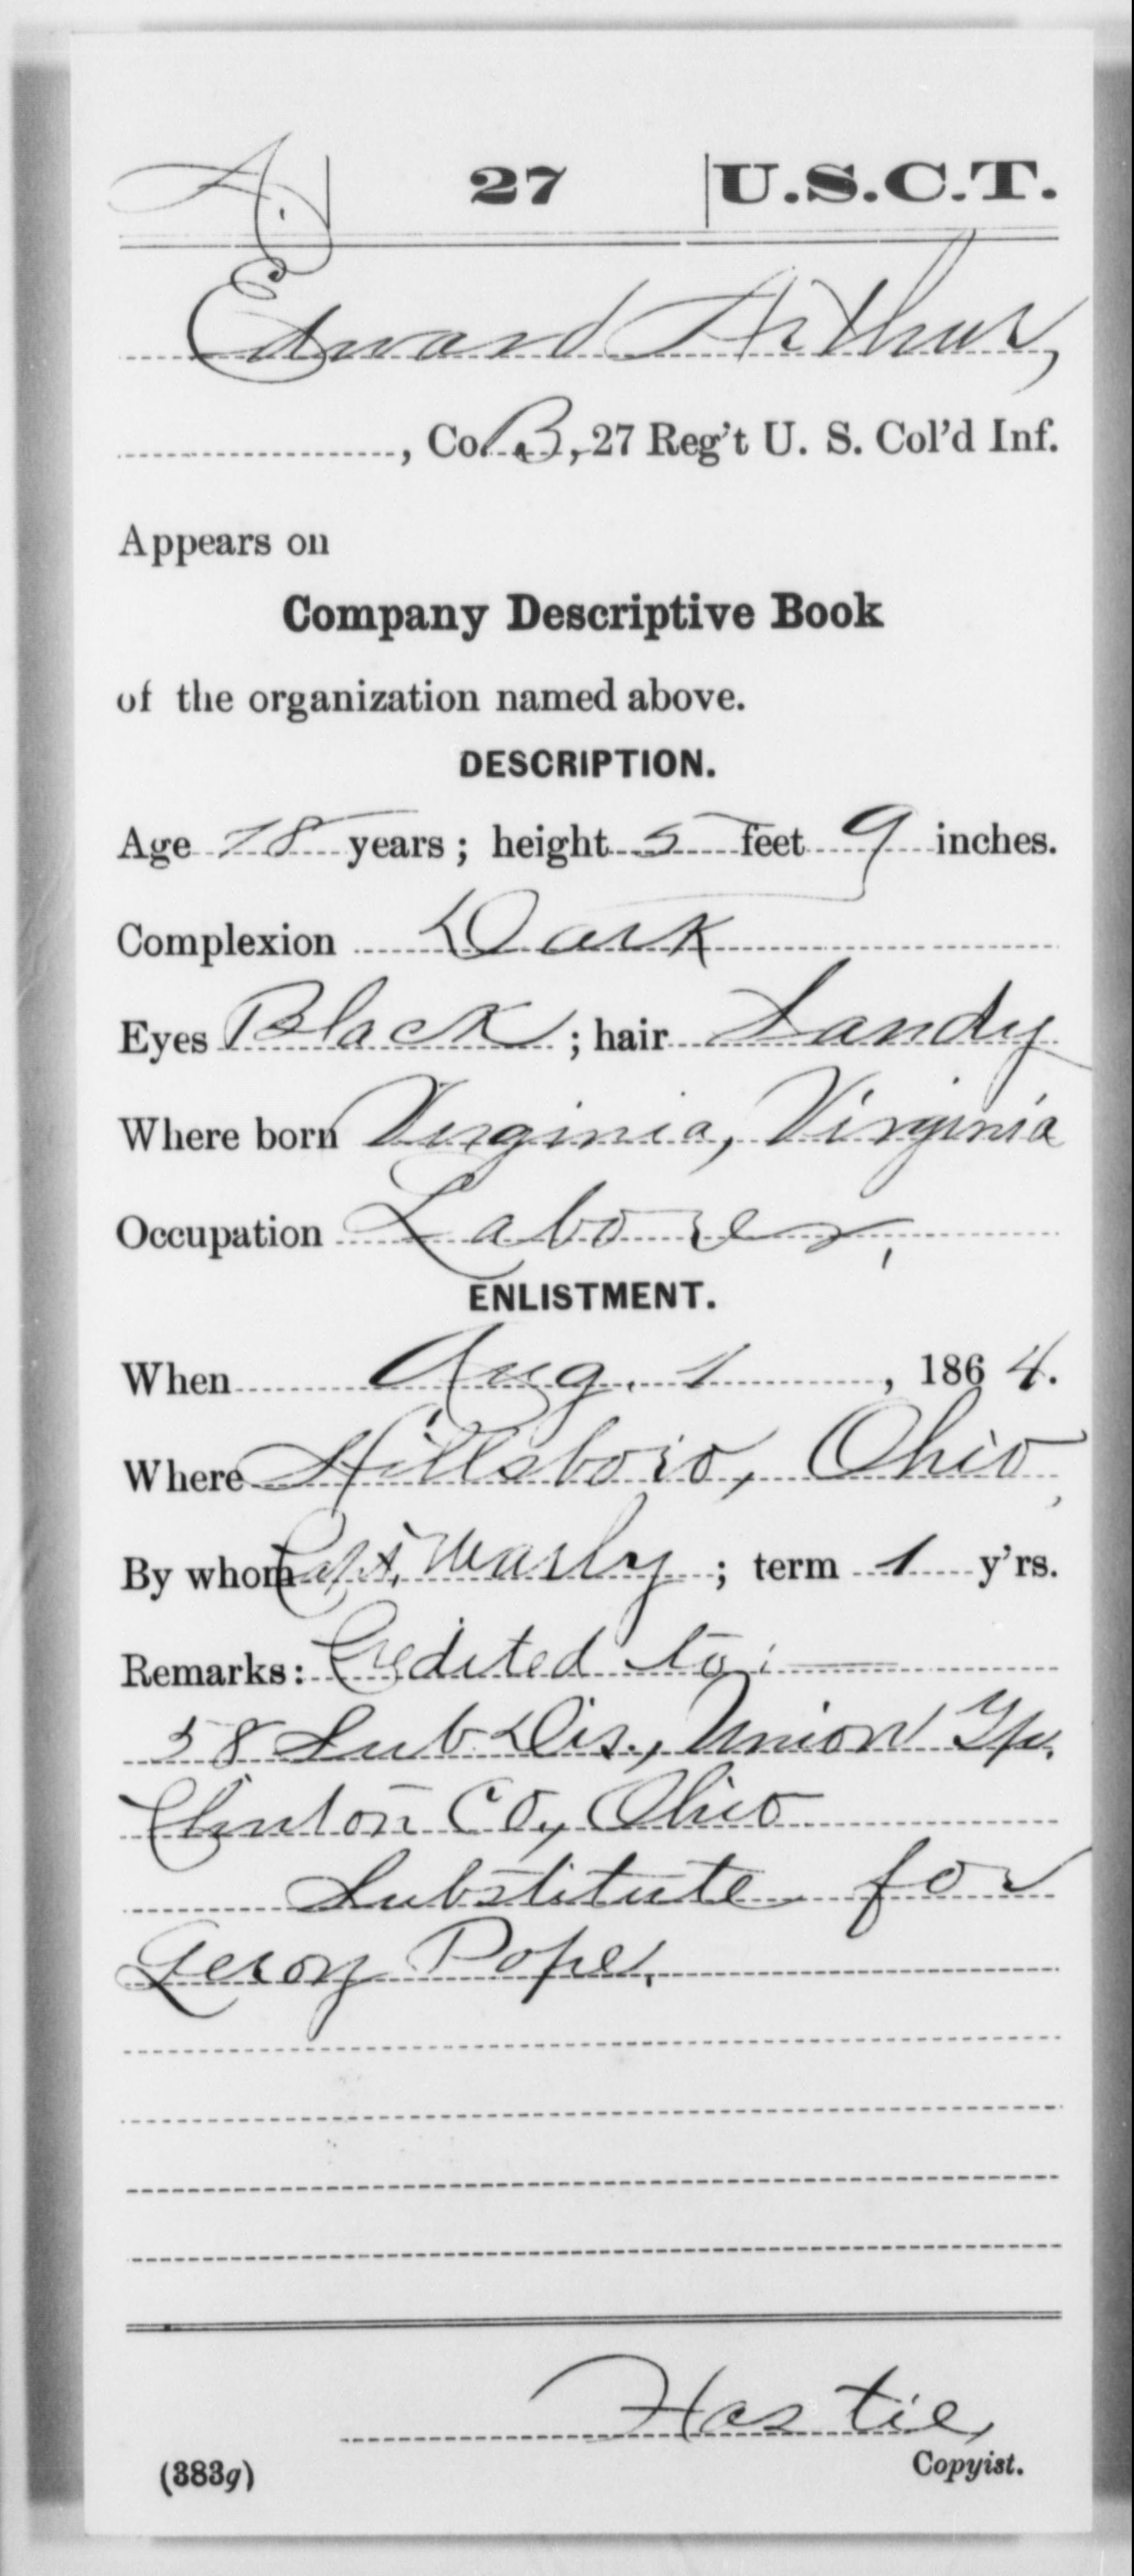 A. | 27 | U.S.C.T.
Edward Arthur,
, Co. B, 27 Reg't U. S. Col'd Inf.
Appears on
Company Descriptive Book
of the organization named above.
DESCRIPTION.
Age 18 years; height 5 feet 9 inches.
Complexion Dark
Eyes Black; hair Sandy
Where born Virginia, Virginia
Occupation Laborer,
ENLISTMENT.
When Aug. 1, 1864.
Where Hillsboro, Ohio,
By whom Capt. ; term 1 y'rs.
Remarks: Credited to:—
58 Sub Dis., Union Tp.
Clinton Co., Ohio
Substitute for
Leroy Pope.
Hastie,
(383g) Copyist.